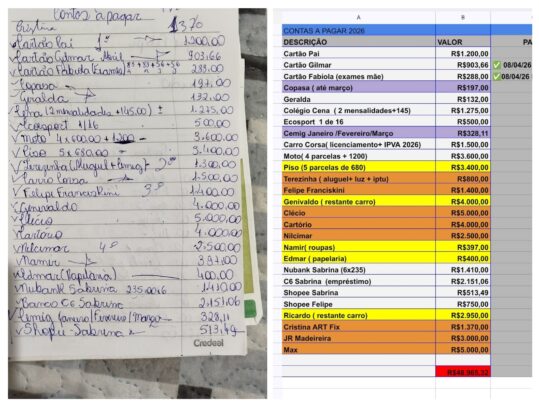 Contas a pagar
Cristina 1376
Cartão Pai 1.200,00
Cartão Gilmar Abril 903,66
Cartão Fabiola Exames 288,00
Copasa 197,00
Geralda 132,00
(2 mensalidades +145,00) 1.275,00
Ecosport 1/16 500,00
Moto 4x600,00 + 1200 3.600,00
Piso 5x680,00 3.400,00
Terezinha (Aluguel + 1.300,00
Carro Corsa 1.500,00
Felipe Franciskini 3º 1.400,00
Genivaldo 4.000,00
Clécio 5.000,00
Cartório 4.000,00
Nilcimar 4º 2.500,00
Namir 397,00
Edmar (Papelaria) 400,00
Nubank Sabrina 235,00x6 1.410,00
Banco C6 Sabrina 2.151,06
Cemig Janeiro/Fevereiro/Março 328,11
Shopee - Sabrina 513,49
Credeal
A B
CONTAS A PAGAR 2026
DESCRIÇÃO VALOR PA
Cartão Pai R$1.200,00
Cartão Gilmar R$903,66 ✅ 08/04/
Cartão Fabiola (exames mãe) R$288,00 ✅ 08/04/
Copasa ( até março) R$197,00
Geralda R$132,00
Colégio Cena ( 2 mensalidades+145) R$1.275,00
Ecosport 1 de 16 R$500,00
Cemig Janeiro /Fevereiro/Março R$328,11
Carro Corsa( licenciamento+ IPVA 2026) R$1.500,00
Moto( 4 parcelas + 1200) R$3.600,00
Piso (5 parcelas de 680) R$3.400,00
Terezinha ( aluguel+ luz + iptu) R$800,00
Felipe Franciskini R$1.400,00
Genivaldo ( restante carro) R$4.000,00
Clécio R$5.000,00
Cartório R$4.000,00
Nilcimar R$2.500,00
Namir( roupas) R$397,00
Edmar ( papelaria) R$400,00
Nubank Sabrina (6x235) R$1.410,00
C6 Sabrina (empréstimo) R$2.151,06
Shopee Sabrina R$513,49
Shopee Felipe R$750,00
Ricardo ( restante carro) R$2.950,00
Cristina ART Fix R$1.370,00
JR Madeireira R$3.000,00
Max R$5.000,00
R$48.965,32